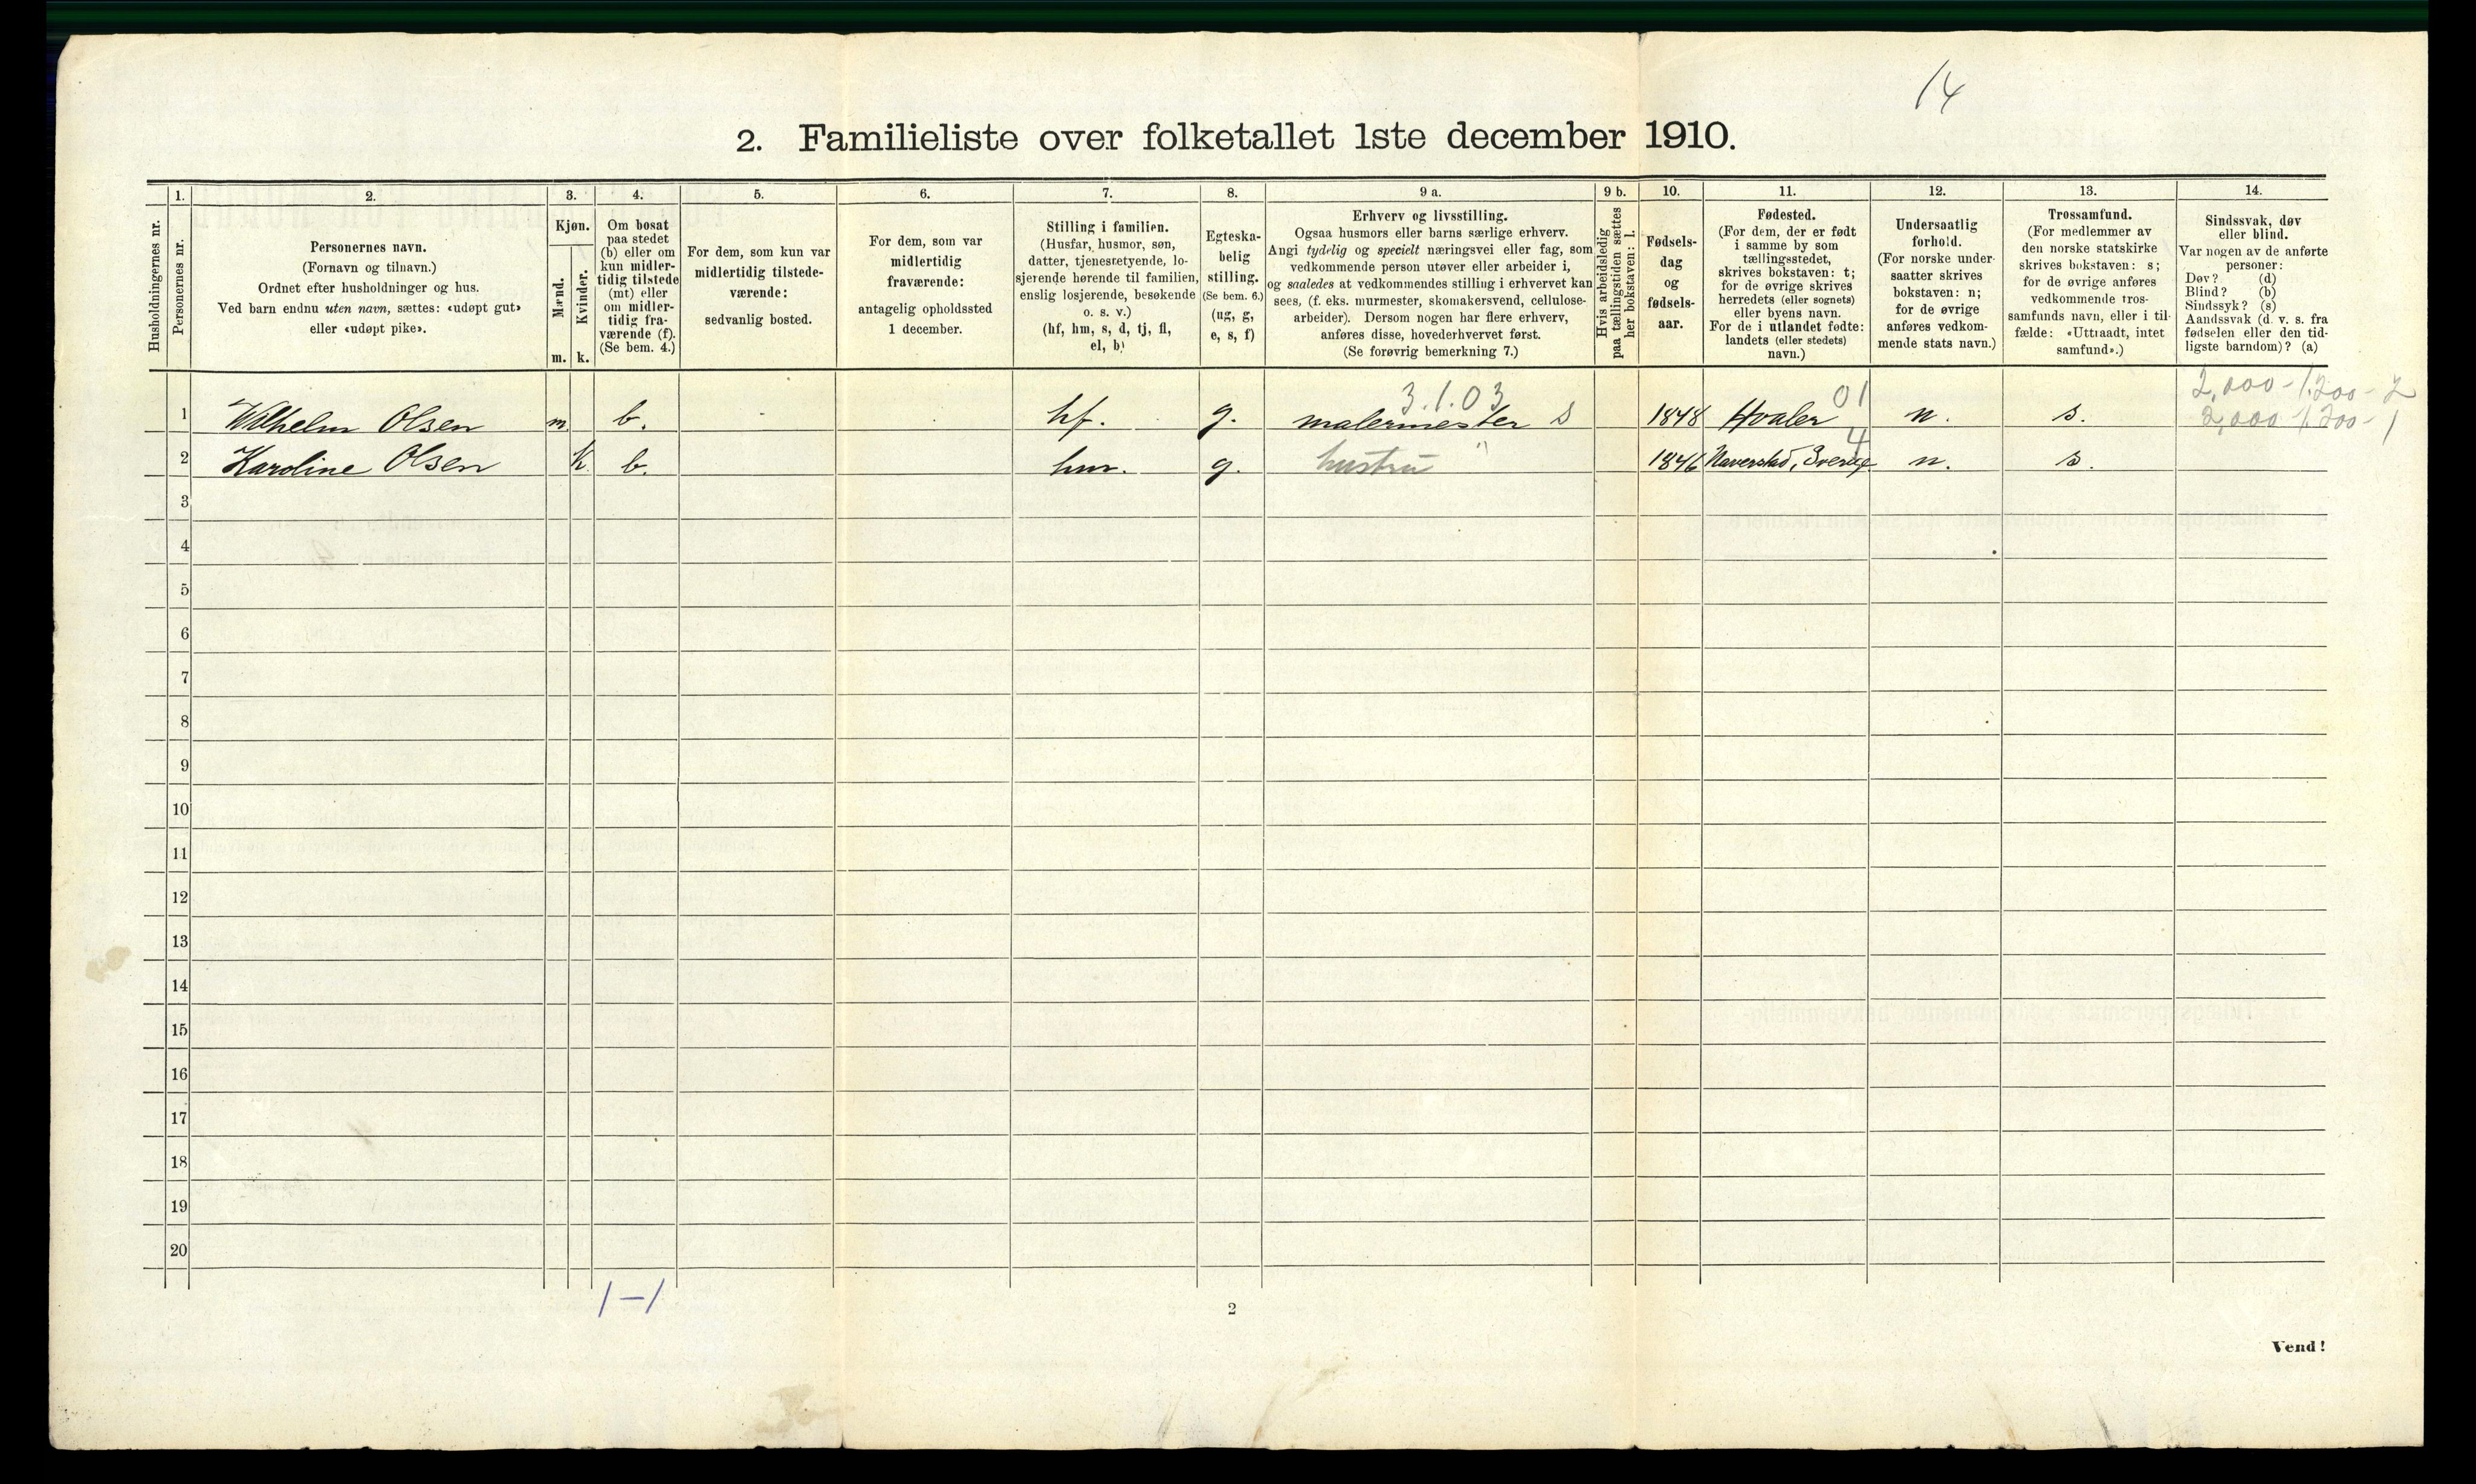 14
2. Familieliste over folketallet 1ste december 1910.
Husholdningernes nr.
1.
Personernes nr.
2.
Personernes navn.
(Fornavn og tilnavn.)
Ordnet efter husholdninger og hus.
Ved barn endnu uten navn, sættes: «udøpt gut»
eller «udøpt pike».
3.
Kjøn.
Mænd.
Kvinder.
m. k.
4.
Om bosat
paa stedet
(b) eller om
kun midler-
tidig tilstede
(mt) eller
om midler-
tidig fra-
værende (f).
(Se bem. 4.)
5.
For dem, som kun var
midlertidig tilstede-
værende:
sedvanlig bosted.
6.
For dem, som var
midlertidig
fraværende:
antagelig opholdssted
1 december.
7.
Stilling i familien.
(Husfar, husmor, søn,
datter, tjenestetyende, lo-
sjerende hørende til familien,
enslig losjerende, besøkende
o. s. v.)
(hf, hm, s, d, tj, fl,
el, b)
8.
Egteska-
belig
stilling.
(Se bem. 6.)
(ug, g,
e, s, f)
9 a.
Erhverv og livsstilling.
Ogsaa husmors eller barns særlige erhverv.
Angi tydelig og specielt næringsvei eller fag, som
vedkommende person utøver eller arbeider i,
og saaledes at vedkommendes stilling i erhvervet kan
sees, (f. eks. murmester, skomakersvend, cellulose-
arbeider). Dersom nogen har flere erhverv,
anføres disse, hovederhvervet først.
(Se forøvrig bemerkning 7.)
9 b.
Hvis arbeidsledig
paa tællingstiden sættes
her bokstaven: l.
10.
Fødsels-
dag
og
fødsels-
aar.
11.
Fødested.
(For dem, der er født
i samme by som
tællingsstedet,
skrives bokstaven: t;
for de øvrige skrives
herredets (eller sognets)
eller byens navn.
For de i utlandet fødte:
landets (eller stedets)
navn.)
12.
Undersaatlig
forhold.
(For norske under-
saatter skrives
bokstaven: n;
for de øvrige
anføres vedkom-
mende stats navn.)
13.
Trossamfund.
(For medlemmer av
den norske statskirke
skrives bokstaven: s;
for de øvrige anføres
vedkommende tros-
samfunds navn, eller i til-
fælde: «Uttraadt, intet
samfund».)
14.
Sindssvak, døv
eller blind.
Var nogen av de anførte
personer:
Døv? (d)
Blind? (b)
Sindssyk? (s)
Aandssvak (d. v. s. fra
fødselen eller den tid-
ligste barndom)? (a)
3.1.03 01 2,000 - 1.200 - 2
1 Wilhelm Olsen m. b. - hf. g. malermester S 1848 Hvaler n. s. 2,000 1.200 - 1
4
2 Karoline Olsen k. b. hm. g. hustru " 1846 Naverstad, Sverige n. s.
3
4
5
6
7
8
9
10
11
12
13
14
15
16
17
18
19
20
1 - 1
2
Vend!